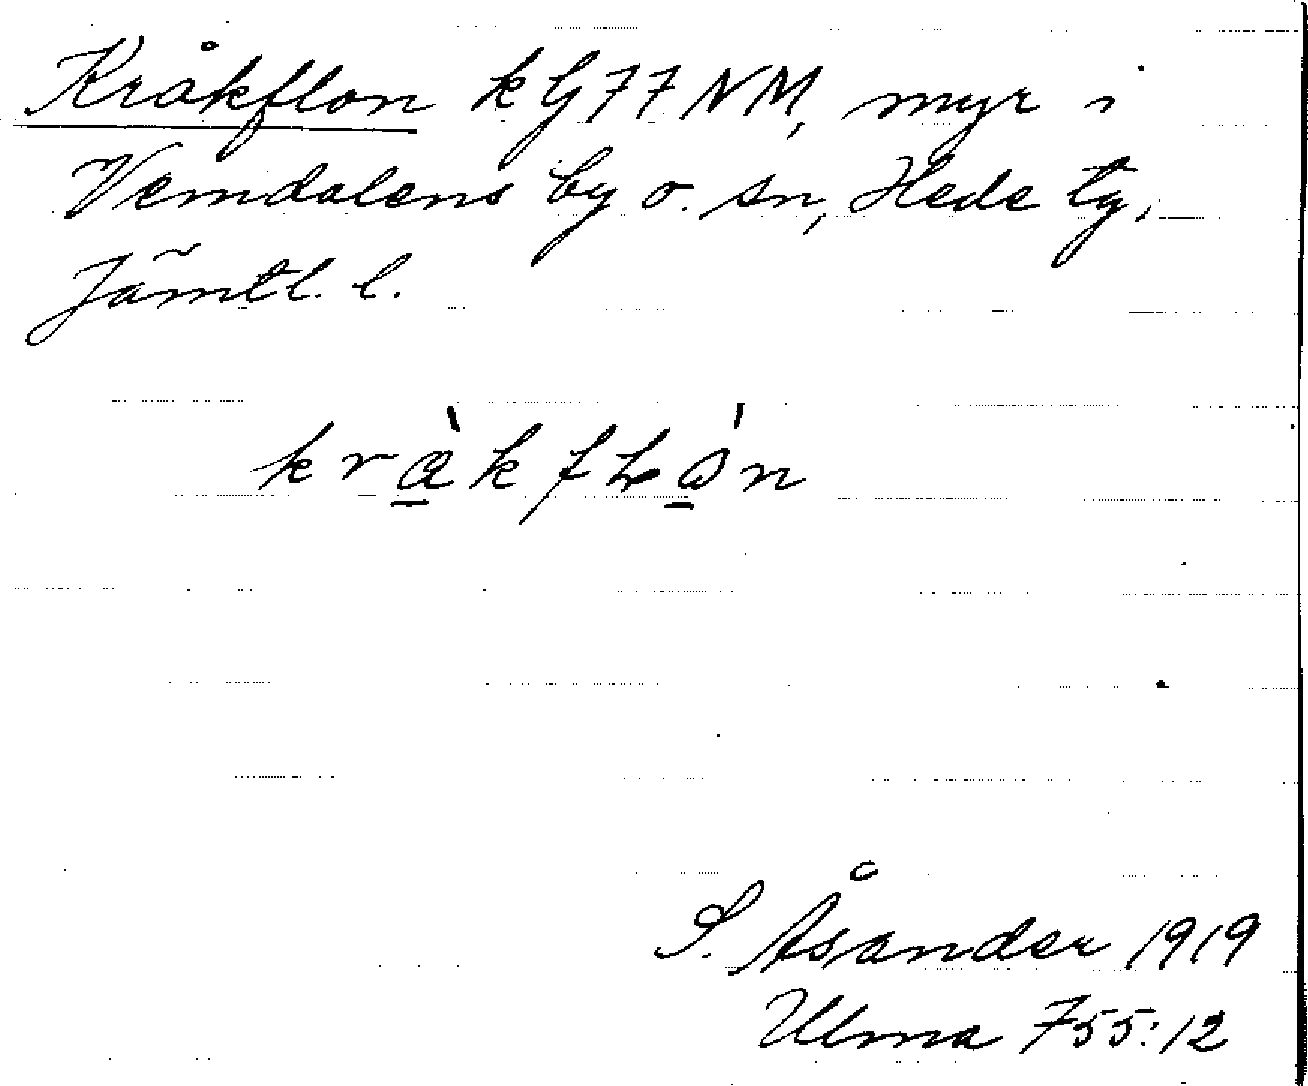 Kråkflon k G77 NM, myr i
Vemdalens by o. sn, Hede tg,
Jämtl. l.
S. Åsander 1919
Ulma 755:12